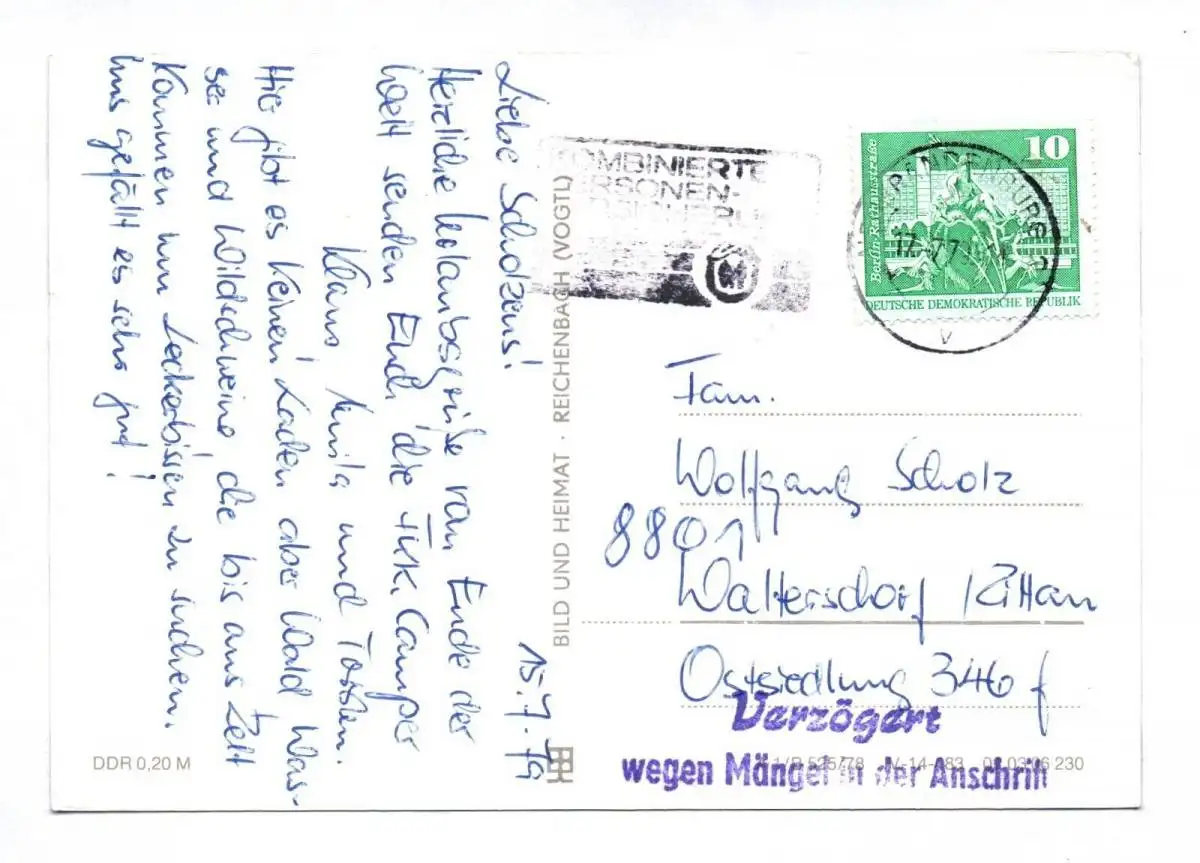 15.7.79
Liebe Scholzens!
Herzliche Urlaubsgrüße vom Ende der
Welt senden Euch die FKK. Camper
Klaus, Anita und Torsten.
Hier gibt es keinen Laden aber Wald Was-
ser und Wildschweine, die bis ans Zelt
kommen um Leckerbissen zu suchen.
Uns gefällt es sehr gut!
DDR 0,20 M
BILD UND HEIMAT · REICHENBACH (VOGTL)
KOMBINIERTE
PERSONEN-
10
Berlin-Rathausstraße
DEUTSCHE DEMOKRATISCHE REPUBLIK
BRANDENBURG
17.-7.79
v
Fam.
Wolfgang Scholz
8801
Waltersdorf / Zittau
Ostsiedlung 346 f
Verzögert
wegen Mängel in der Anschrift
525/78 03 06 230